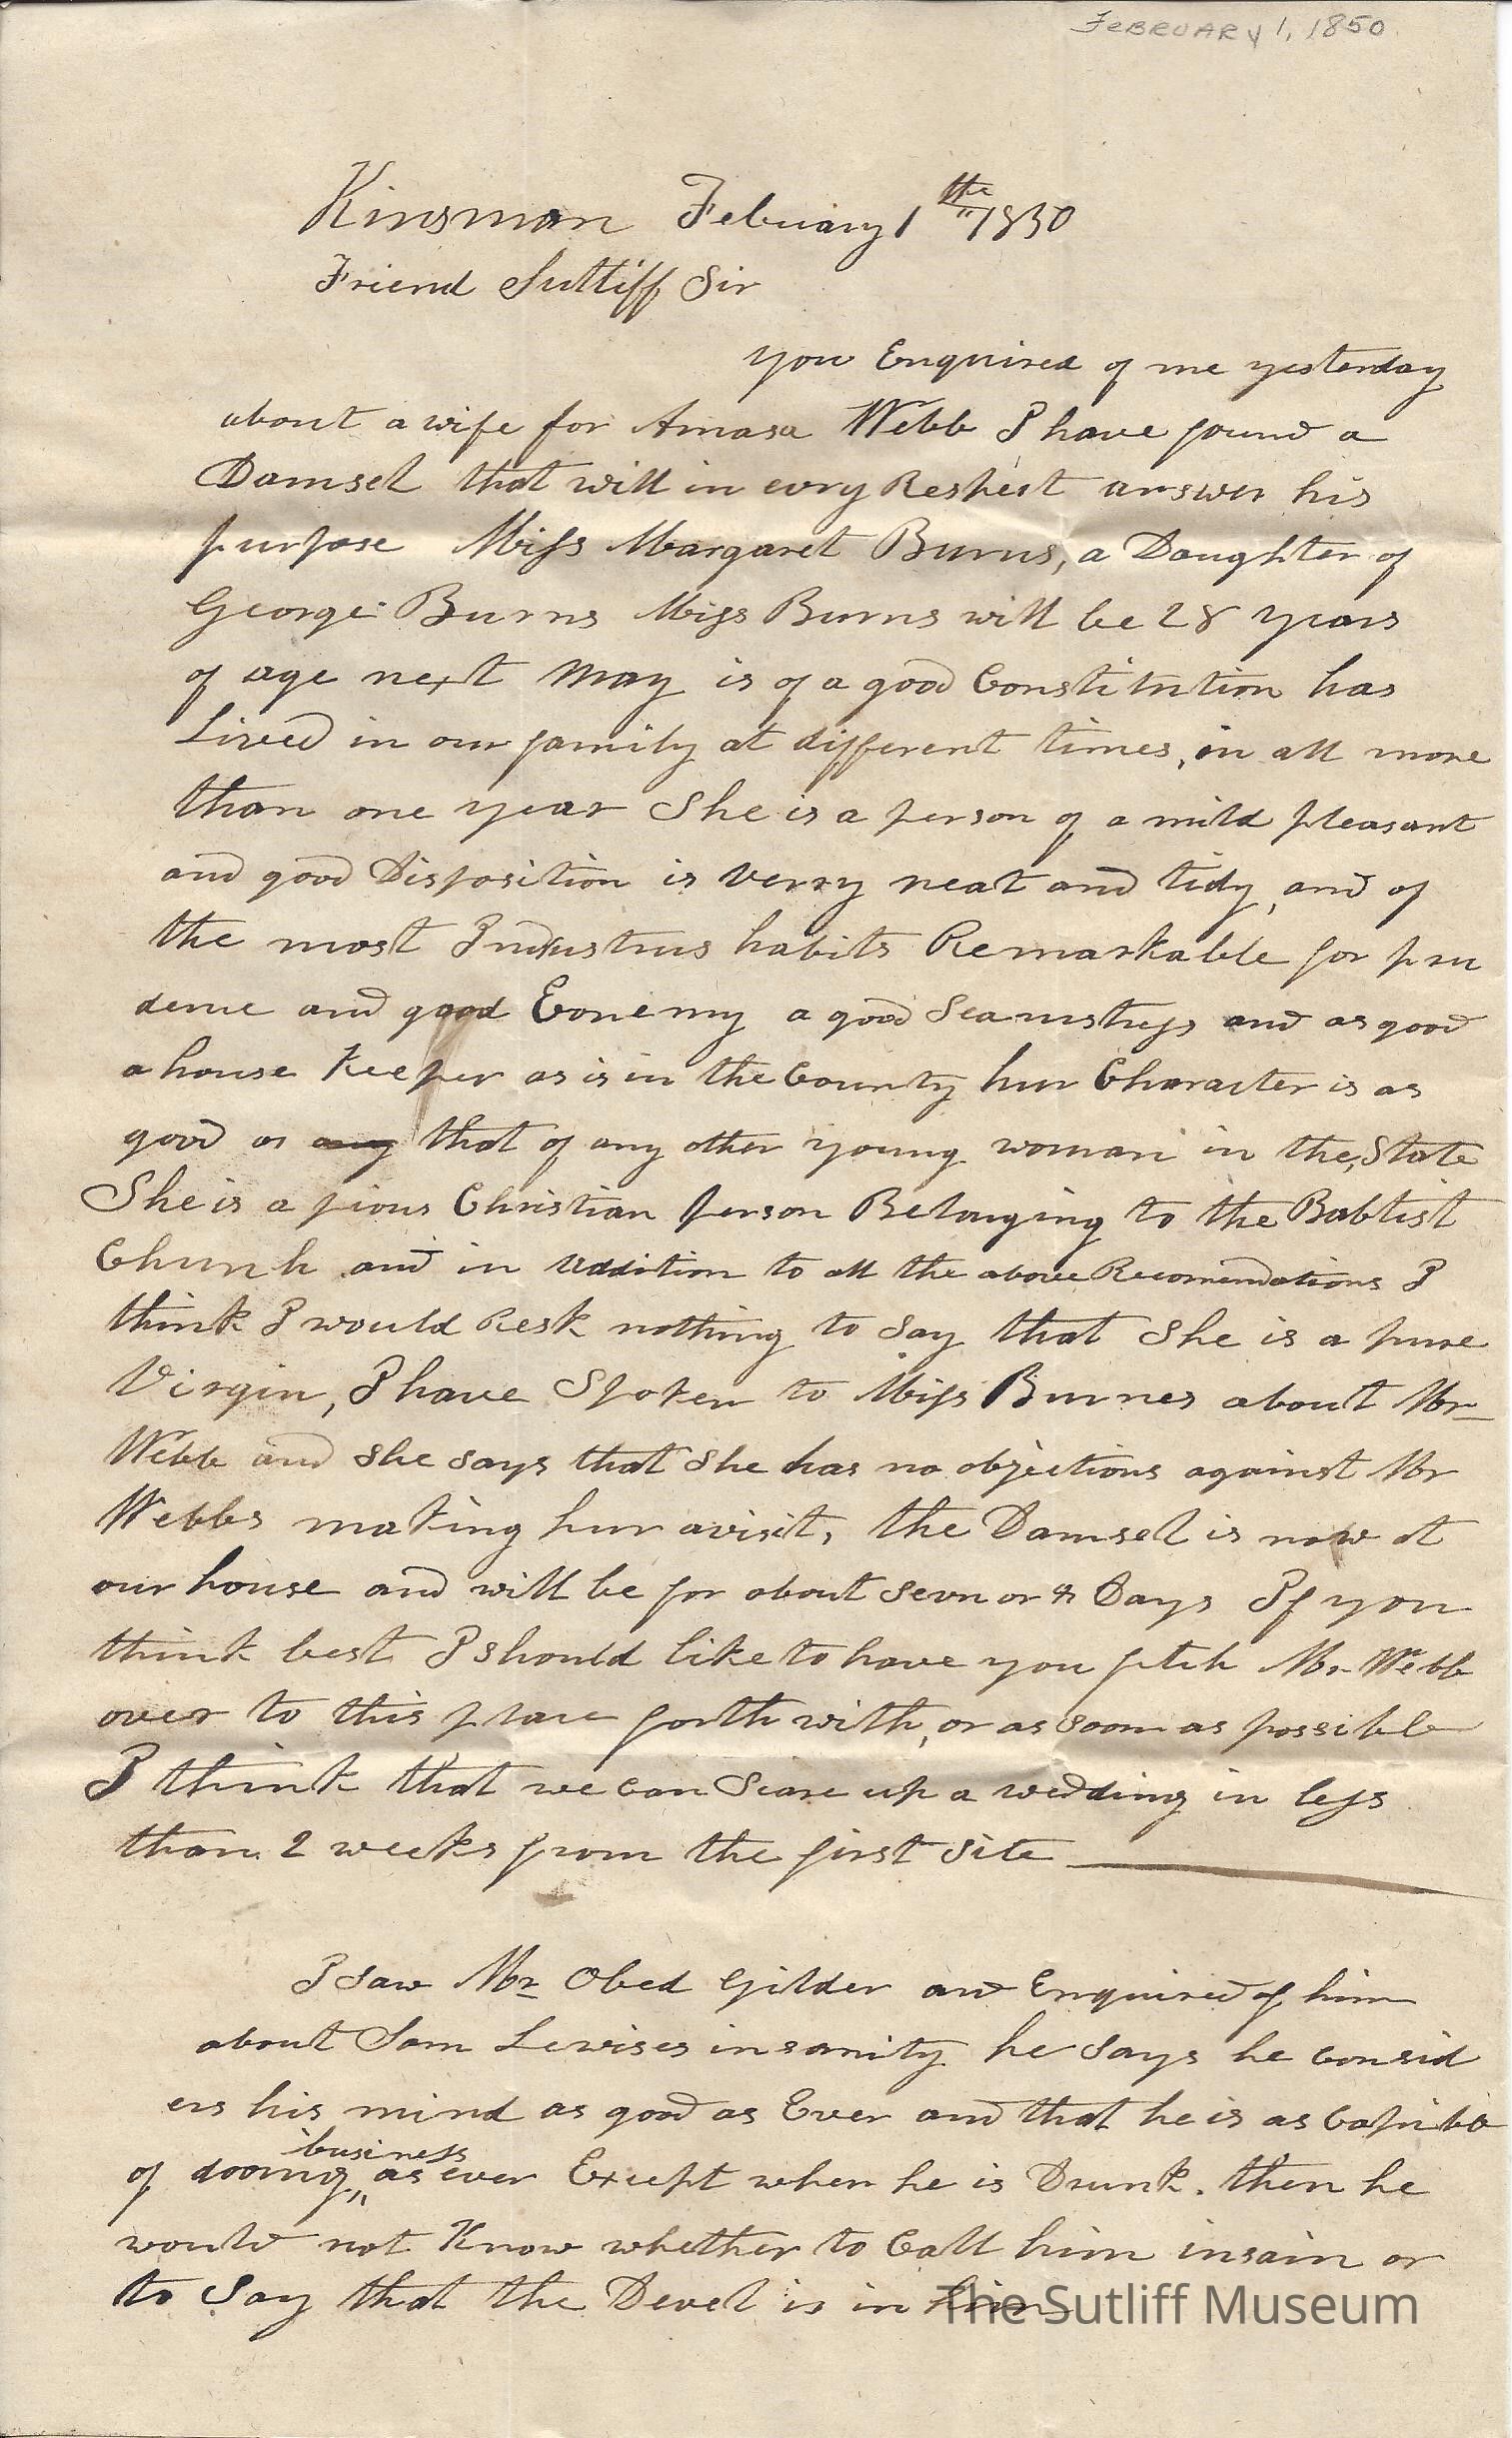 FEBRUARY 1, 1850
Kinsman Febuary 1the "1850
Friend Sutliff Sir
you Enquired of me yesterday
about a wife for Amasa Webb I have found a
Damsel that will in evry Respect answer his
purpose Miss Margaret Burns, a Daughter of
George Burns Miss Burns will be 28 years
of age next May is of a good Constitution has
Lived in our family at different times, in all more
than one year She is a person of a mild pleasant
and good Disposition is verry neat and tidy, and of
the most Industrus habits Remarkable for pru
dence and good Econemy a good Seamstress and as good
a house Keeper as is in the County hur Character is as
good as any that of any other young woman in the State
She is a pious Christian person Belonging to the Babtist
Church and in addition to all the above Recomendations I
think I would Resk nothing to Say that She is a pure
Virgin, I have Spoken to Miss Burnes about Mr
Webb and she says that she has no objections against Mr
Webbs making hur a visit, the Damsel is now at
our house and will be for about sevn or 8 Days If you
think best I should like to have you fetch Mr Webb
over to this place forth with, or as soon as possible
I think that we can Scare up a wedding in less
than 2 weeks from the first site
I saw Mr Obed Gilder and Enquired of him
about Sam Lewises insanity he says he consid
ers his mind as good as Ever and that he is as Capible
of dooing business as ever Except when he is Drunk. then he
would not Know whether to Call him insain or
to Say that the Devel is in him
The Sutliff Museum